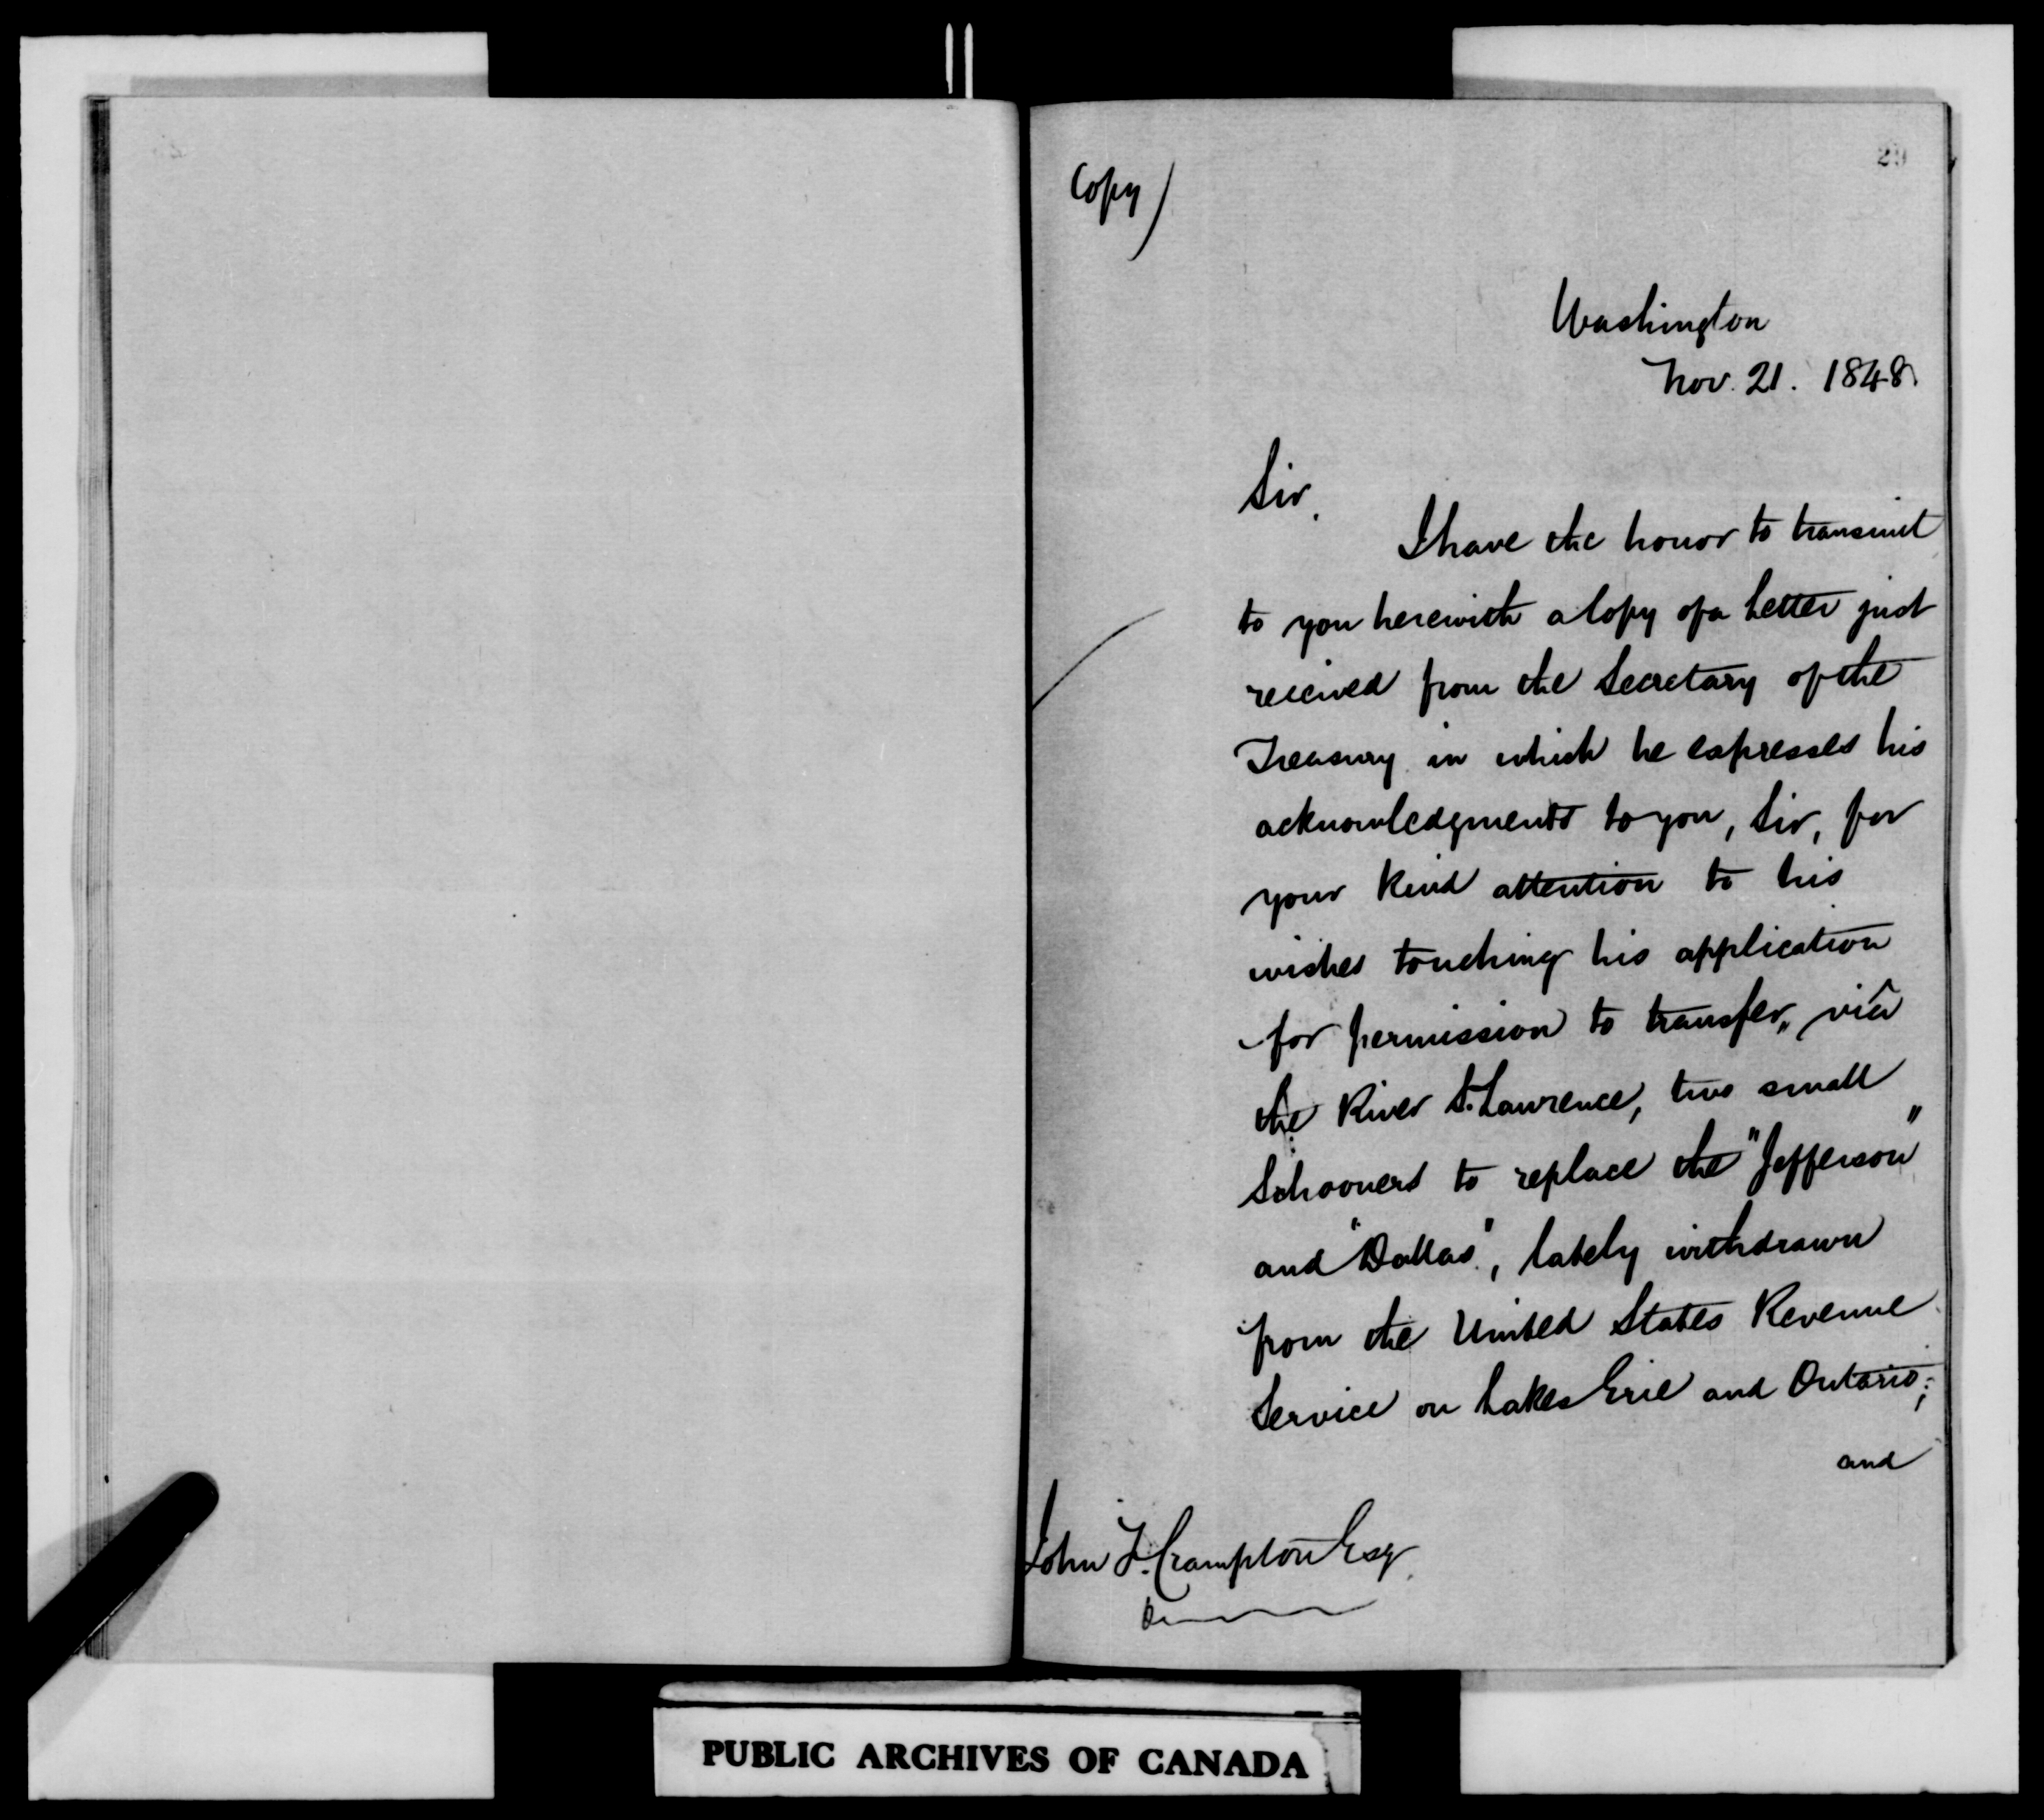 29
Copy)
Washington
Nov. 21. 1848.
Sir,
I have the honor to transmit
to you herewith a Copy of a Letter just
received from the Secretary of the
Treasury in which he expresses his
acknowledgments to you, Sir, for
your kind attention to his
wishes touching his application
for permission to transfer, viâ
the River St. Lawrence, two small
Schooners to replace the "Jefferson"
and "Dallas", lately withdrawn
from the United States Revenue
Service on Lakes Erie and Ontario;
and
John F. Crampton Esq.
PUBLIC ARCHIVES OF CANADA